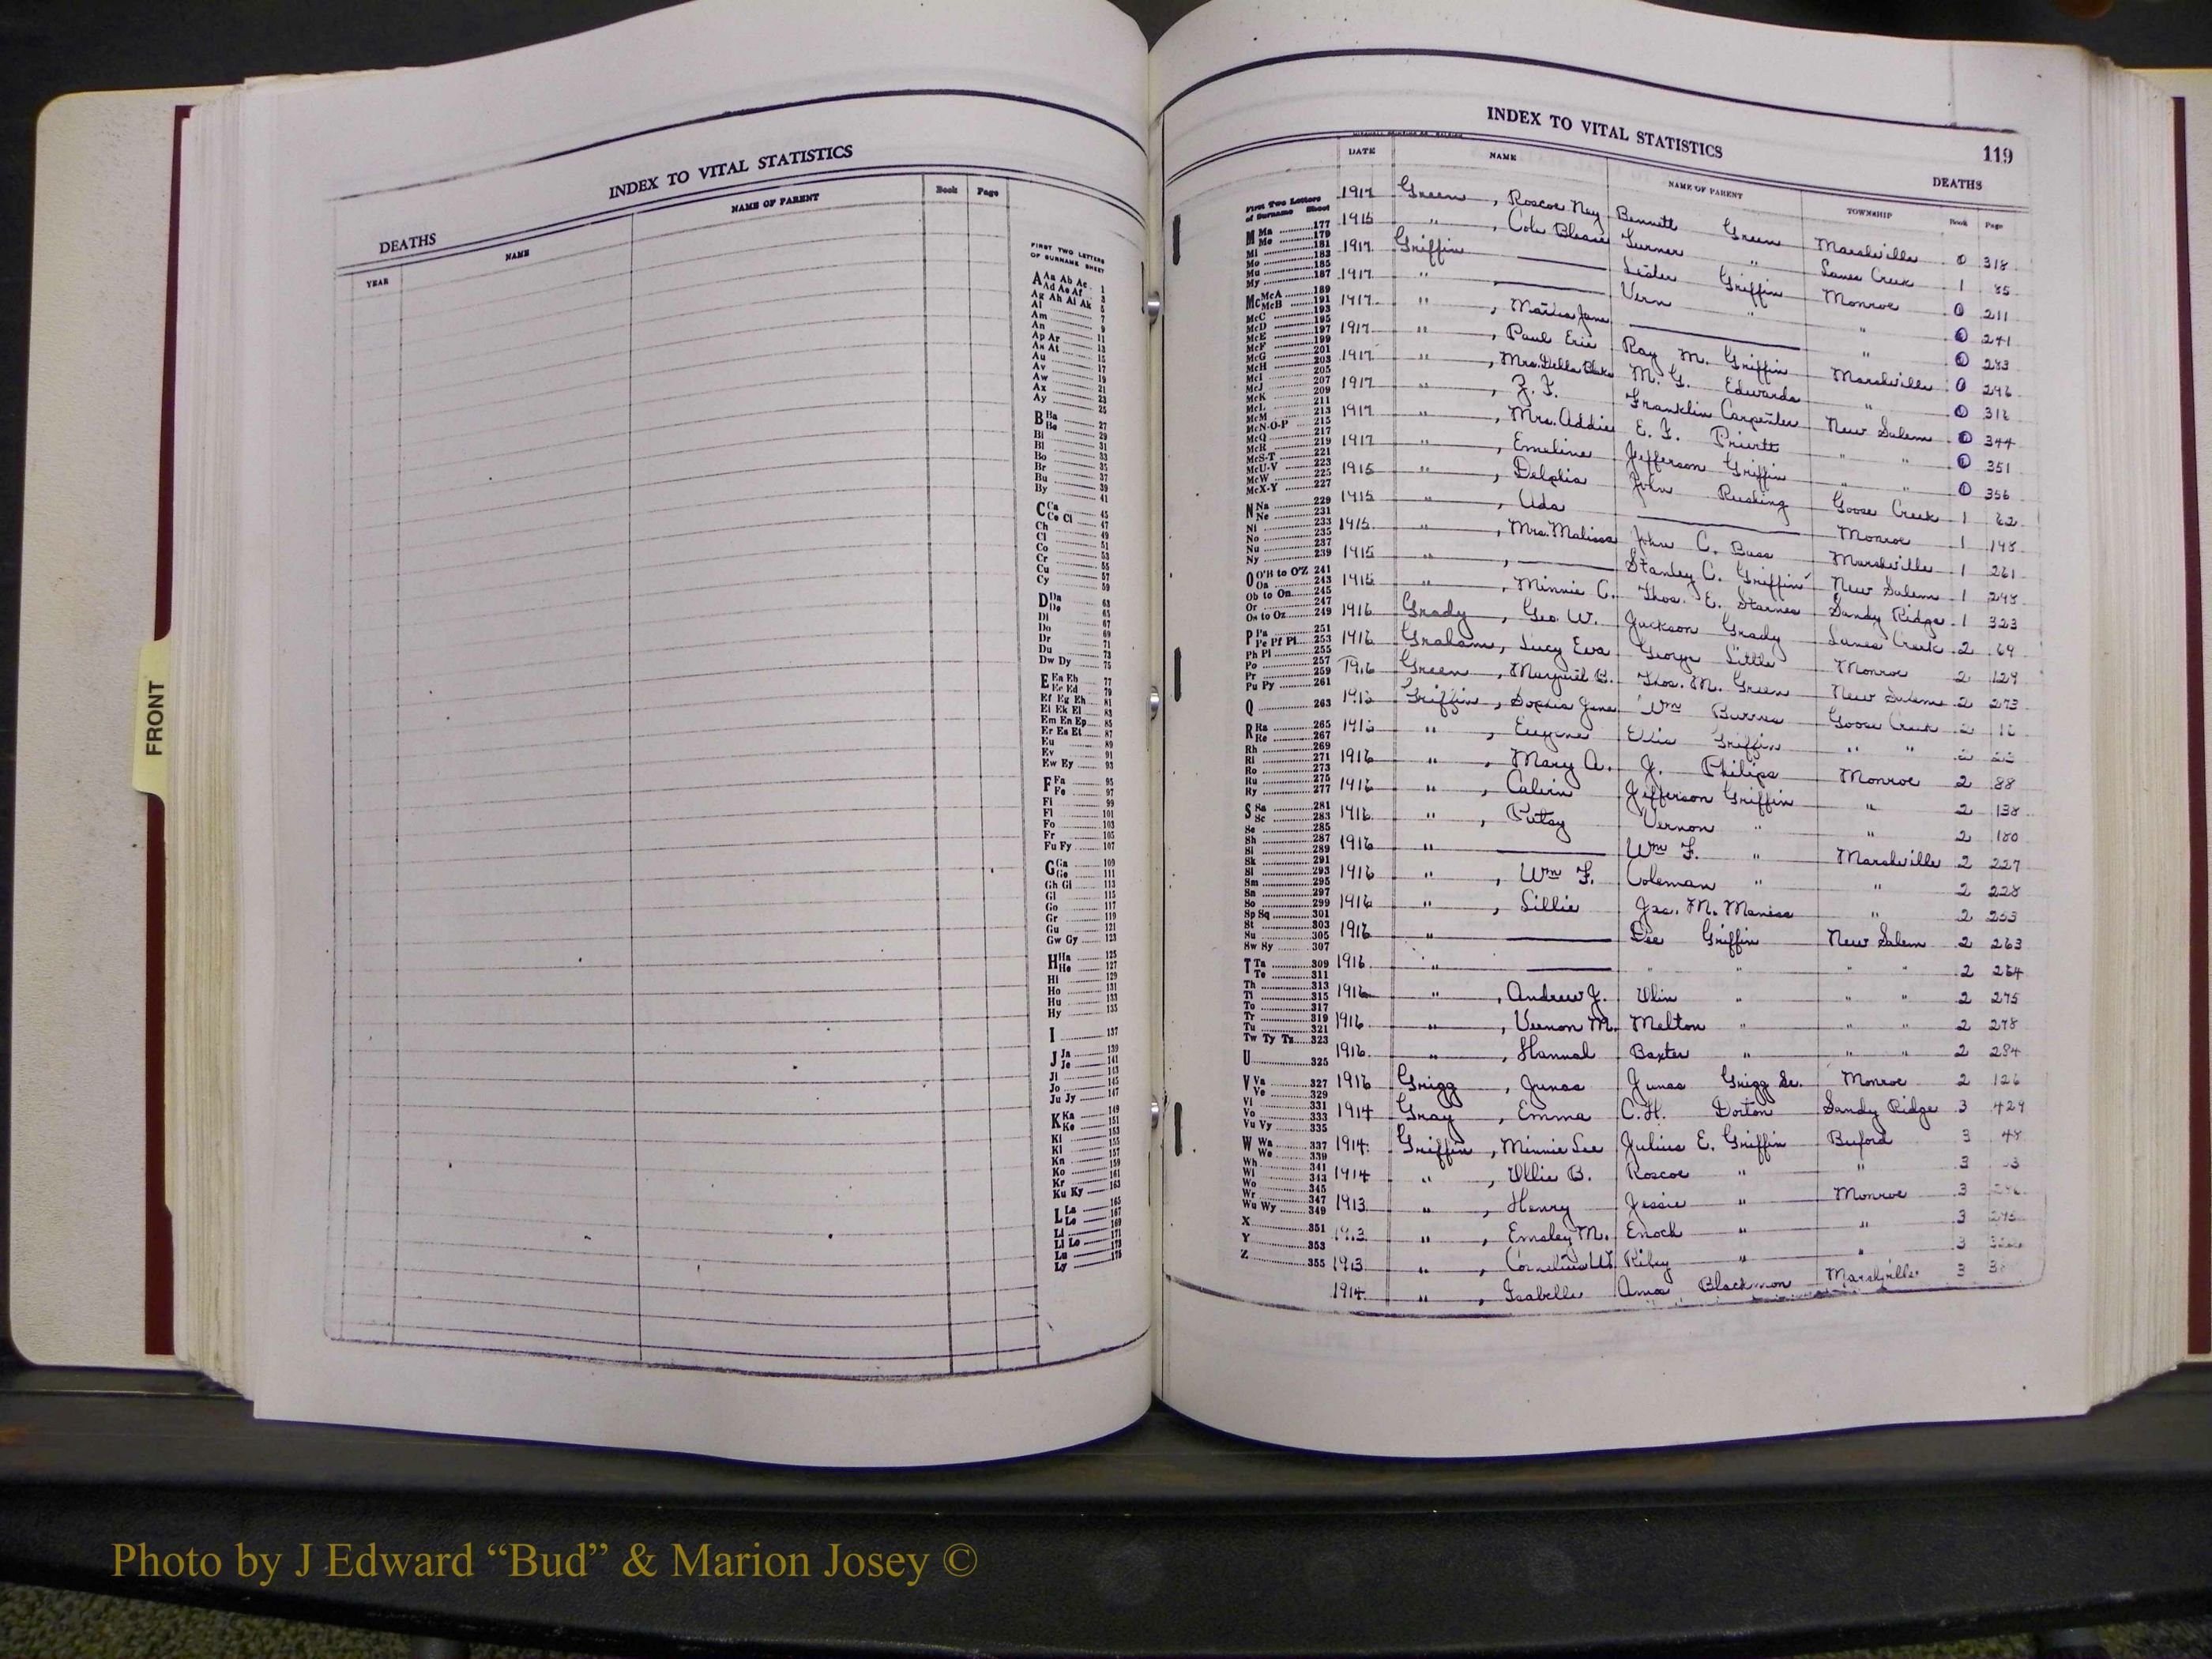 INDEX TO VITAL STATISTICS
DEATHS
YEAR NAME NAME OF PARENT Book Page
FIRST TWO LETTERS
OF SURNAME SHEET
A Aa Ab Ac 1
Ad Ae Af 3
Ag Ah Ai Ak 5
Al 7
Am 9
An 11
Ap Ar 13
As At 15
Au 17
Av 19
Aw 21
Ax 23
Ay 25
B Ba 27
Be 29
Bi 31
Bl 33
Bo 35
Br 37
Bu 39
By 41
C Ca 45
Ce Ci 47
Ch 49
Cl 51
Co 53
Cr 55
Cu 57
Cy 59
D Da 63
De 65
Di 67
Do 69
Dr 71
Du 73
Dw Dy 75
E Ea Eb 77
Ec Ed 79
Ef Eg Eh 81
Ei Ek El 83
Em En Ep 85
Er Es Et 87
Eu 89
Ev 91
Ew Ey 93
F Fa 95
Fe 97
Fi 99
Fl 101
Fo 103
Fr 105
Fu Fy 107
G Ga 109
Ge 111
Gh Gi 113
Gl 115
Go 117
Gr 119
Gu 121
Gw Gy 123
H Ha 125
He 127
Hi 129
Ho 131
Hu 133
Hy 135
I 137
J Ja 139
Je 141
Ji 143
Jo 145
Ju Jy 147
K Ka 149
Ke 151
Ki 153
Kl 155
Kn 157
Ko 159
Kr 161
Ku Ky 163
L La 165
Le 167
Li 169
Ll Lo 171
Lu 173
Ly 175
INDEX TO VITAL STATISTICS 119
DEATHS
DATE NAME NAME OF PARENT TOWNSHIP Book Page
First Two Letters
of Surname Sheet
M Ma 177
Me 179
Mi 181
Mo 183
Mu 185
My 187
Mc McA 189
McB 191
McC 193
McD 195
McE 197
McF 199
McG 201
McH 203
McI 205
McJ 207
McK 209
McL 211
McM 213
McN-O-P 215
McQ 217
McR 219
McS-T 221
McU-V 223
McW 225
McX-Y 227
N Na 229
Ne 231
Ni 233
No 235
Nu 237
Ny 239
O O'B to O'Z 241
Oa 243
Ob to On 245
Or 247
Os to Oz 249
P Pa 251
Pe Pf Pi 253
Ph Pl 255
Po 257
Pr 259
Pu Py 261
Q 263
R Ra 265
Re 267
Rh 269
Ri 271
Ro 273
Ru 275
Ry 277
S Sa 281
Sc 283
Se 285
Sh 287
Si 289
Sk 291
Sl 293
Sm 295
Sn 297
So 299
Sp Sq 301
St 303
Su 305
Sw Sy 307
T Ta 309
Te 311
Th 313
Ti 315
To 317
Tr 319
Tu 321
Tw Ty Tz 323
U 325
V Va 327
Ve 329
Vi 331
Vo 333
Vu Vy 335
W Wa 337
We 339
Wh 341
Wi 343
Wo 345
Wr 347
Wu Wy 349
X 351
Y 353
Z 355
1917 Green, Roscoe Ney Bennett Green Marshville 0 318
1915 ", Cole Blease Turner " Lanes Creek 1 85
1917 Griffin Lester Griffin Monroe 0 211
1917 " Vern " " 0 241
", Jane " 0 283
1917 ", Paul Eric Ray M. Griffin Marshville 0 296
1917 ", Mrs. Della Blake M. G. Edwards " 0 316
1917 ", Z. F. Franklin Carpenter New Salem 0 344
1917 ", Mrs. Addie E. F. Priutt " " 0 351
1917 ", Emeline Jefferson Griffin " " 0 356
1915 ", Delphia John Rushing Goose Creek 1 62
1915 ", Uda Monroe 1 198
1915 ", Mrs. Malissa John C. Bass Marshville 1 261
1915 ", Stanley C. Griffin New Salem 1 298
1915 ", Minnie C. Thos. E. Starnes Sandy Ridge 1 323
1916 Grady, Geo. W. Jackson Grady Lanes Creek 2 69
1916 Graham, Lucy Eva George Little Monroe 2 129
1916 Green, Margaret B. Thos. M. Green New Salem 2 273
1916 Griffin, Sophia Jane Wm Burns Goose Creek 2
1916 ", Eugene Ellis Griffin " "
1916 ", Mary A. J. Philips Monroe 2 88
1916 ", Calvin Jefferson Griffin " 2 138
1916 ", Vernon " " 2 180
1916 " Wm F. " Marshville 2 227
1916 ", Wm F. Coleman " " 2 228
1916 ", Lillie Jas. M. Maness " 2 253
1916 " Lee Griffin New Salem 2 263
1916 " " " " " 2 264
1916 ", Andrew J. Olin " " " 2 275
1916 ", Vernon M. Melton " " " 2 278
1916 ", Hannah Baxter " " " 2 284
1916 Grigg, Junas Junas Grigg Sr. Monroe 2 126
1914 Gray, Emma C. H. Dorton Sandy Ridge 3 429
1914 Griffin, Minnie Lee Julius E. Griffin Buford 3 48
1914 ", Ollie B. Roscoe " " 3
1913 ", Henry Jessie " Monroe 3
1913 ", Emsley M. Enoch " " 3
1913 ", Cornelius W. Riley " " 3
1914 ", Isabelle Amos Blackmon Marshville 3
FRONT
Photo by J Edward “Bud” & Marion Josey ©